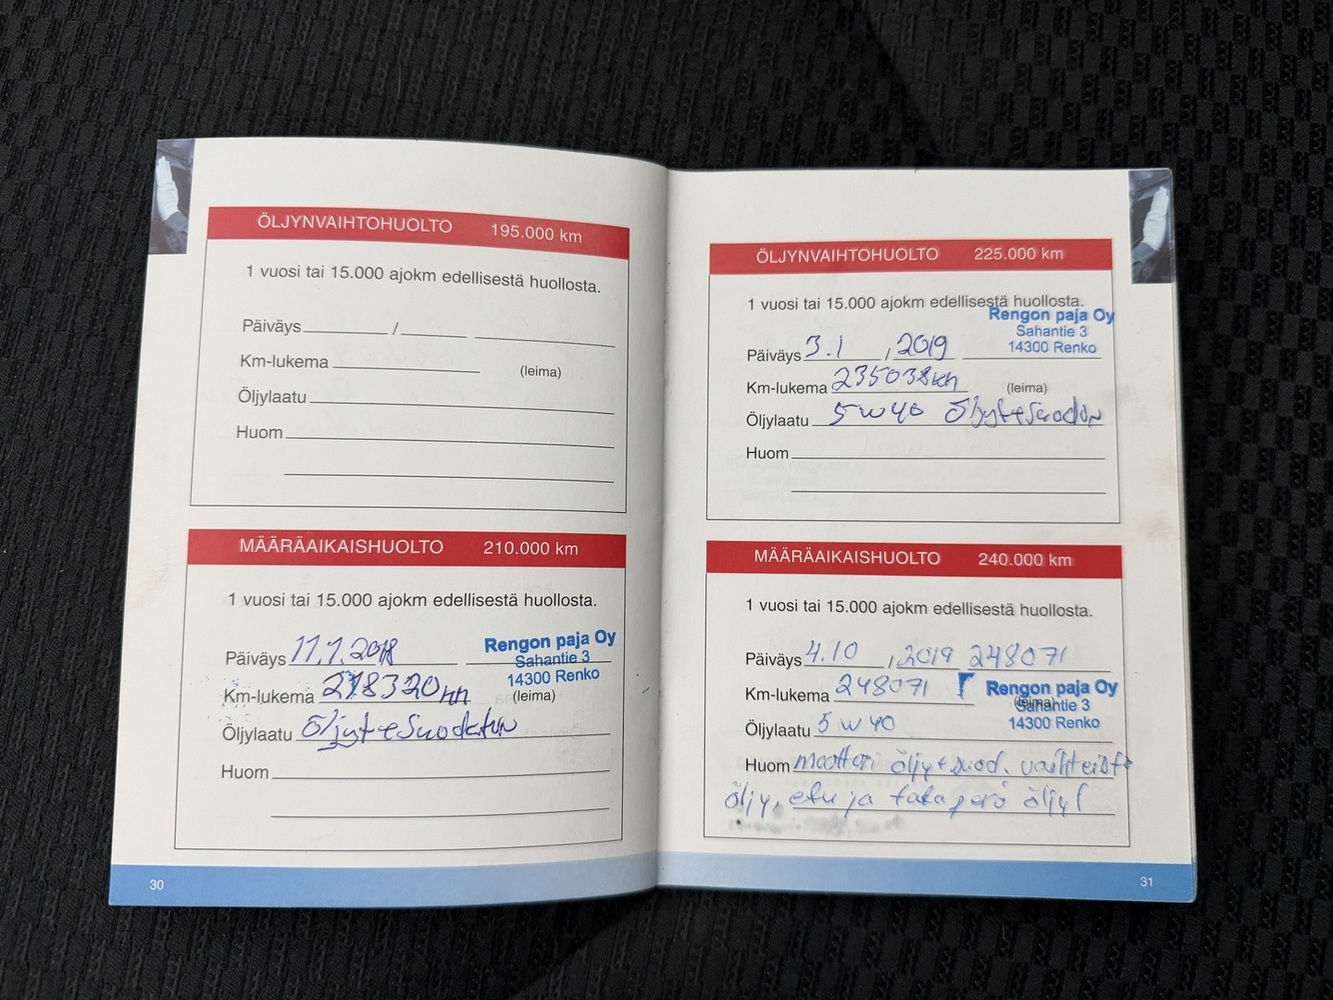 ÖLJYNVAIHTOHUOLTO 195.000 km
1 vuosi tai 15.000 ajokm edellisestä huollosta.
Päiväys / 
Km-lukema
(leima)
Öljylaatu
Huom
MÄÄRÄAIKAISHUOLTO 210.000 km
1 vuosi tai 15.000 ajokm edellisestä huollosta.
Rengon paja Oy
Päiväys 11.1.2018
Sahantie 3
14300 Renko
Km-lukema 218320km
(leima)
Öljylaatu Öljyt+Suodatin
Huom
30
ÖLJYNVAIHTOHUOLTO 225.000 km
1 vuosi tai 15.000 ajokm edellisestä huollosta.
Rengon paja Oy
Sahantie 3
14300 Renko
Päiväys 3.1 , 2019
Km-lukema 235038km
(leima)
Öljylaatu 5W40 Öljyt+Suodin
Huom
MÄÄRÄAIKAISHUOLTO 240.000 km
1 vuosi tai 15.000 ajokm edellisestä huollosta.
Päiväys 4.10 , 2019 248071
Km-lukema 248071
Rengon paja Oy
(leima)
Sahantie 3
14300 Renko
Öljylaatu 5W40
Huom moottori öljy+suod. vaihteisto
öljy, etu ja takaperä öljyt
31